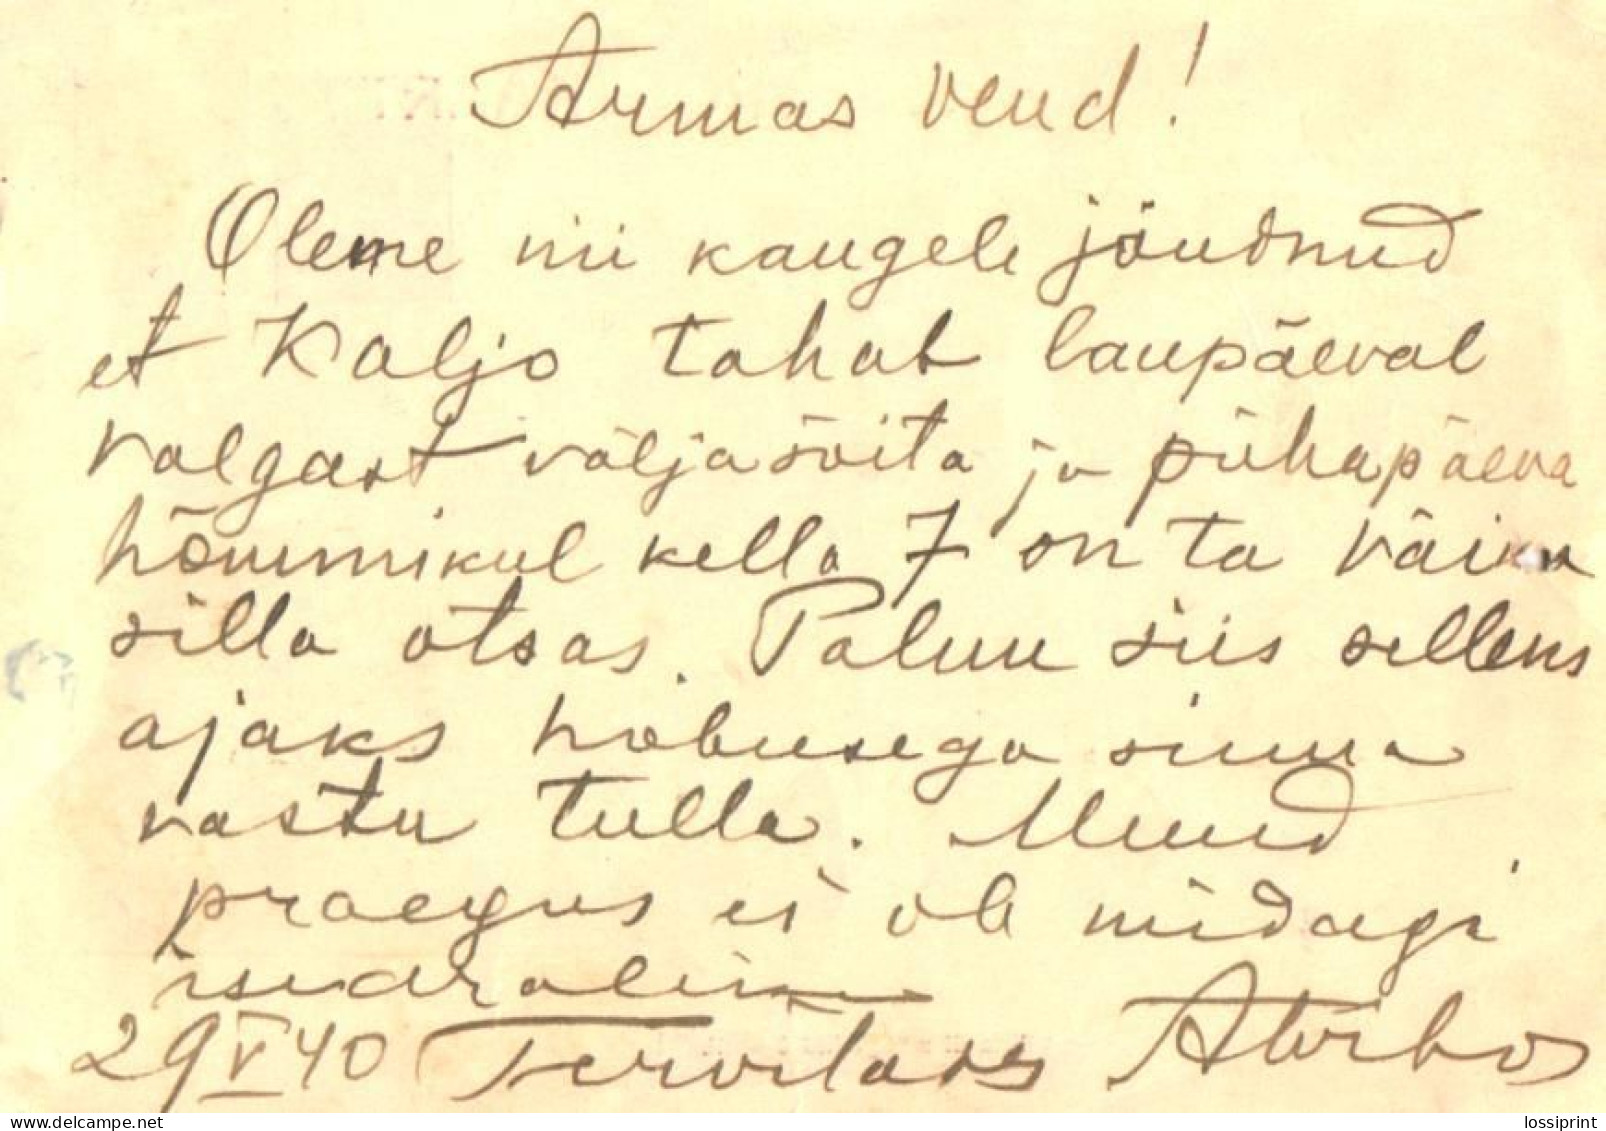 Armas vend!
Oleme nii kaugele jõudnud
et Kaljo tahab laupäeval
Valgast väljasõita ja pühapäeva
hõmmikul kella 7 on ta väikse
silla otsas. Palun siis selleks
ajaks hobusega sinna
vastu tulla. Muud
praegus ei ole midagi
29 V 40 Tervitades
delcampe.net
lossiprint